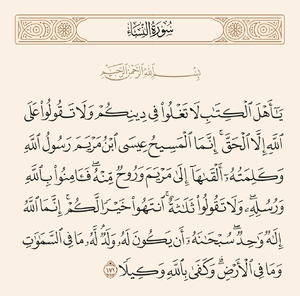 سُورَةُ النِّسَاءِ
بِسْمِ اللَّهِ الرَّحْمَٰنِ الرَّحِيمِ
يَـٰٓأَهْلَ الْكِتَـٰبِ لَا تَغْلُوا۟ فِى دِينِكُمْ وَلَا تَقُولُوا۟ عَلَى
اللَّهِ إِلَّا الْحَقَّ ۚ إِنَّمَا الْمَسِيحُ عِيسَى ابْنُ مَرْيَمَ رَسُولُ اللَّهِ
وَكَلِمَتُهُۥٓ أَلْقَىٰهَآ إِلَىٰ مَرْيَمَ وَرُوحٌ مِّنْهُ ۖ فَـَٔامِنُوا۟ بِاللَّهِ
وَرُسُلِهِۦ ۖ وَلَا تَقُولُوا۟ ثَلَـٰثَةٌ ۚ انتَهُوا۟ خَيْرًا لَّكُمْ ۚ إِنَّمَا اللَّهُ
إِلَـٰهٌ وَٰحِدٌ ۖ سُبْحَـٰنَهُۥٓ أَن يَكُونَ لَهُۥ وَلَدٌ ۘ لَّهُۥ مَا فِى السَّمَـٰوَٰتِ
وَمَا فِى الْأَرْضِ ۗ وَكَفَىٰ بِاللَّهِ وَكِيلًا ١٧١